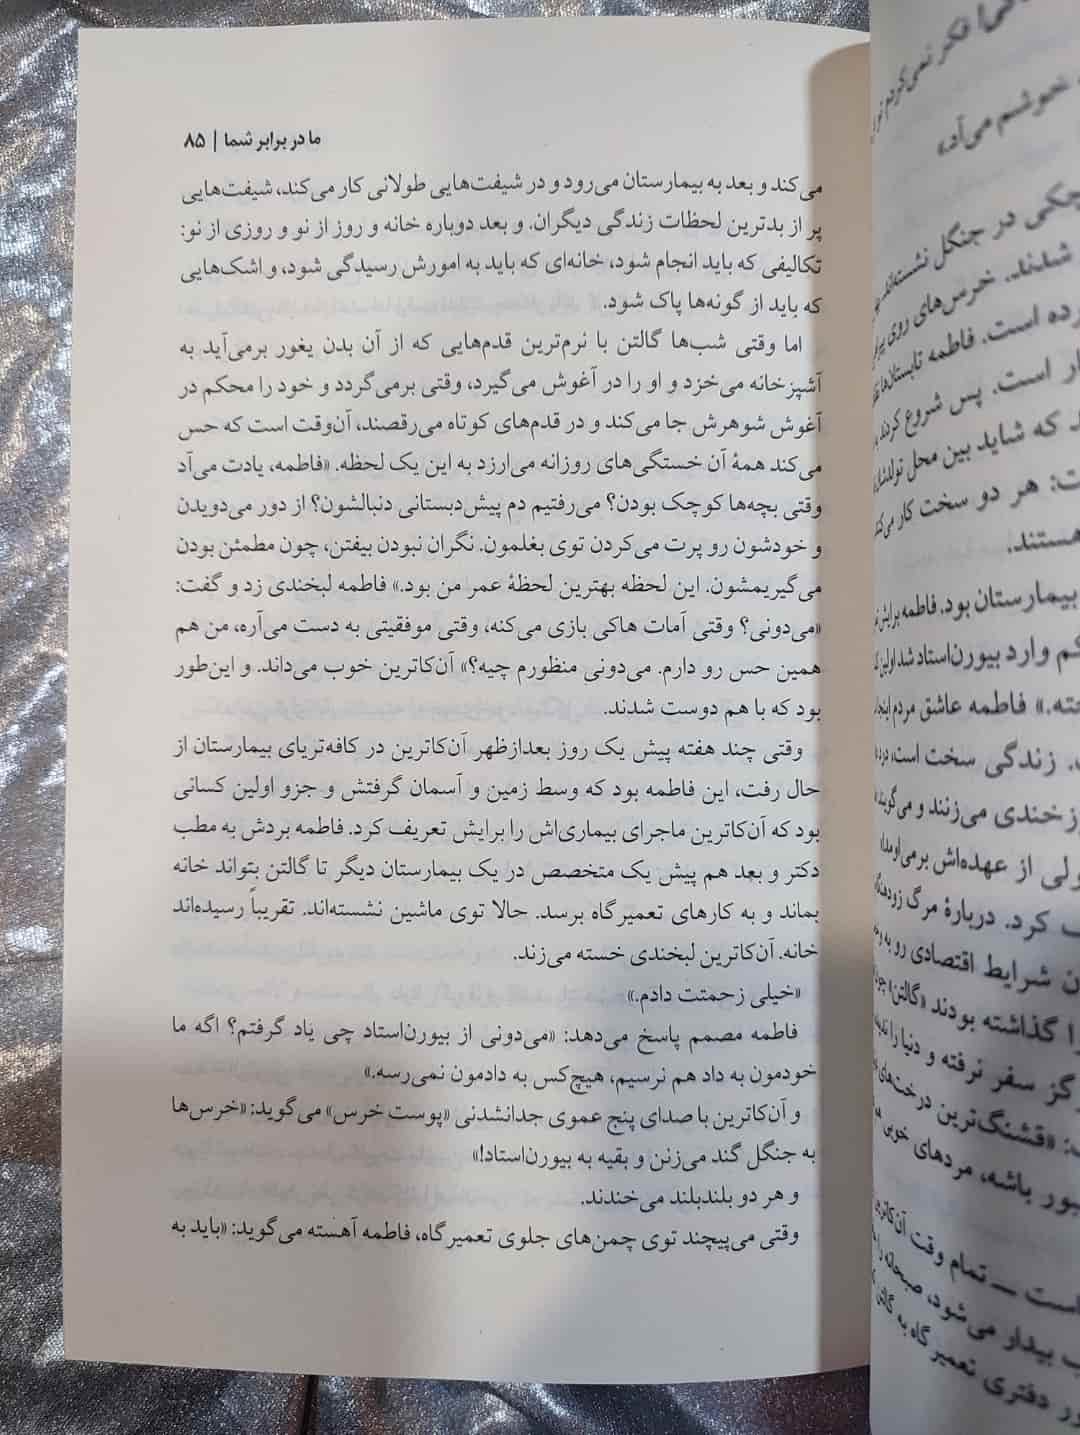 ما در برابر شما | ۸۵
می‌کند و بعد به بیمارستان می‌رود و در شیفت‌هایی طولانی کار می‌کند، شیفت‌هایی
پر از بدترین لحظات زندگی دیگران. و بعد دوباره خانه و روز از نو و روزی از نو:
تکالیفی که باید انجام شود، خانه‌ای که باید به امورش رسیدگی شود، و اشک‌هایی
که باید از گونه‌ها پاک شود.
اما وقتی شب‌ها گالتن با نرم‌ترین قدم‌هایی که از آن بدن یغور برمی‌آید به
آشپزخانه می‌خزد و او را در آغوش می‌گیرد، وقتی برمی‌گردد و خود را محکم در
آغوش شوهرش جا می‌کند و در قدم‌های کوتاه می‌رقصند، آن‌وقت است که حس
می‌کند همهٔ آن خستگی‌های روزانه می‌ارزد به این یک لحظه. «فاطمه، یادت می‌آد
وقتی بچه‌ها کوچک بودن؟ می‌رفتیم دم پیش‌دبستانی دنبالشون؟ از دور می‌دویدن
و خودشون رو پرت می‌کردن توی بغلمون. نگران نبودن بیفتن، چون مطمئن بودن
می‌گیریمشون. این لحظه بهترین لحظهٔ عمر من بود.» فاطمه لبخندی زد و گفت:
«می‌دونی؟ وقتی اَمات هاکی بازی می‌کنه، وقتی موفقیتی به دست می‌آره، من هم
همین حس رو دارم. می‌دونی منظورم چیه؟» آن‌کاترین خوب می‌داند. و این‌طور
بود که با هم دوست شدند.
وقتی چند هفته پیش یک روز بعدازظهر آن‌کاترین در کافه‌تریای بیمارستان از
حال رفت، این فاطمه بود که وسط زمین و آسمان گرفتش و جزو اولین کسانی
بود که آن‌کاترین ماجرای بیماری‌اش را برایش تعریف کرد. فاطمه بردش به مطب
دکتر و بعد هم پیش یک متخصص در یک بیمارستان دیگر تا گالتن بتواند خانه
بماند و به کارهای تعمیرگاه برسد. حالا توی ماشین نشسته‌اند. تقریباً رسیده‌اند
خانه. آن‌کاترین لبخندی خسته می‌زند.
«خیلی زحمتت دادم.»
فاطمه مصمم پاسخ می‌دهد: «می‌دونی از بیورن‌استاد چی یاد گرفتم؟ اگه ما
خودمون به داد هم نرسیم، هیچ‌کس به دادمون نمی‌رسه.»
و آن‌کاترین با صدای پنج عموی جدانشدنی «پوست خرس» می‌گوید: «خرس‌ها
به جنگل گند می‌زنن و بقیه به بیورن‌استاد!»
و هر دو بلندبلند می‌خندند.
وقتی می‌پیچند توی چمن‌های جلوی تعمیرگاه، فاطمه آهسته می‌گوید: «باید به
فکر نمی‌کردم
خوشم می‌آد.»
در جنگل نشسته‌اند
شدند. خرس‌های روی
است. فاطمه تابستان‌ها
است. پس شروع کردند
که شاید بین محل
هر دو سخت کار
هستند.
بیمارستان بود. فاطمه
وارد بیورن‌استاد شد
فاطمه عاشق مردم
زندگی سخت است
می‌زنند و می‌گویند
از عهده‌اش
کرد. دربارهٔ مرگ
شرایط اقتصادی رو به
گذاشته بودند «گالتن»
سفر نرفته و دنیا را
«قشنگ‌ترین درخت‌های
باشه، مردهای خوبی
است — تمام وقت
بیدار می‌شود، صبحانه را
دفتری تعمیرگاه به